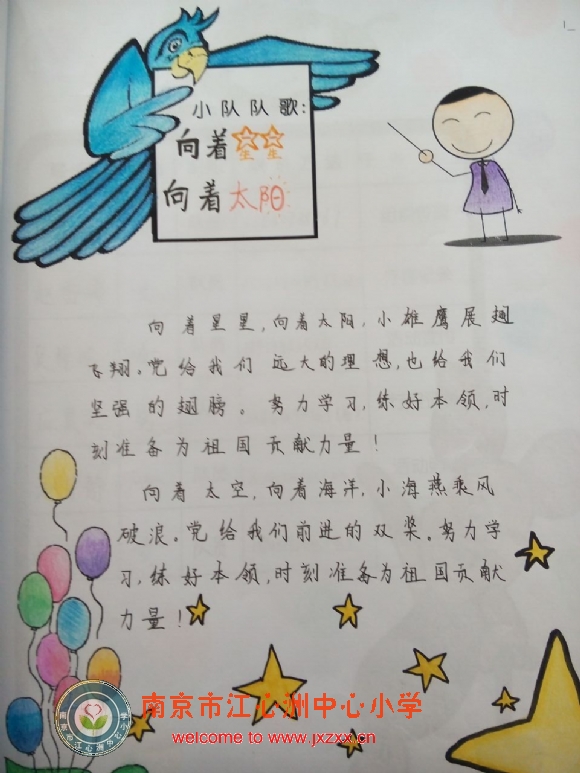 小队队歌:
向着星星
向着太阳
向着星星,向着太阳,小雄鹰展翅
飞翔,党给我们远大的理想,也给我们
坚强的翅膀。努力学习,练好本领,时
刻准备为祖国贡献力量!
向着太空,向着海洋,小海燕乘风
破浪。党给我们前进的双桨。努力学
习,练好本领,时刻准备为祖国贡献
力量!
南京市江心洲中心小学
welcome to www.jxzxx.cn